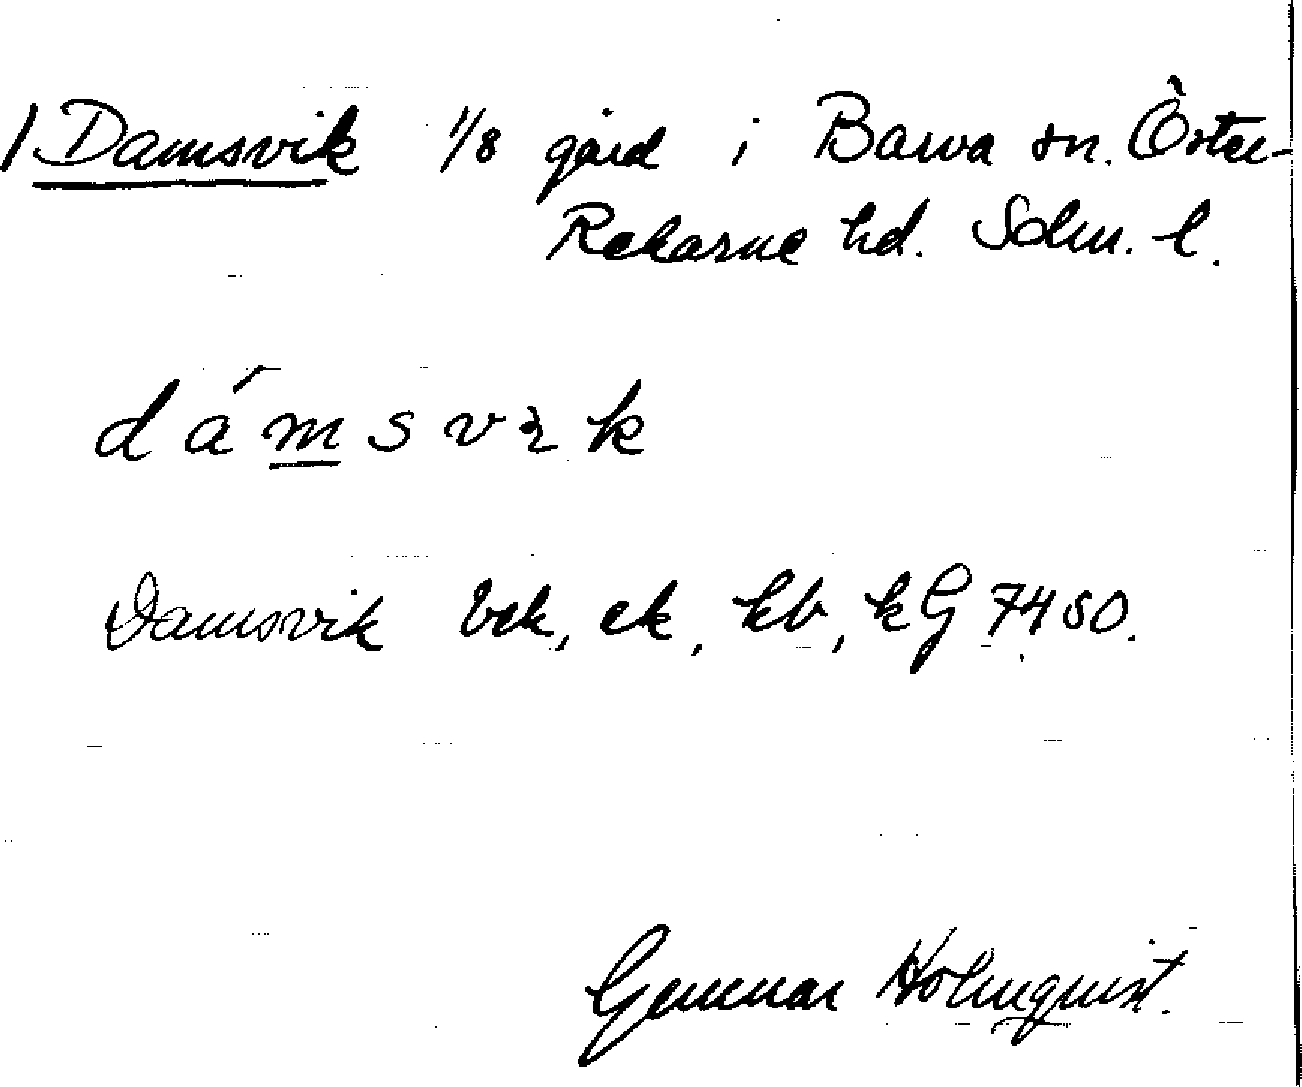 1 Damsvik 1/8 gård i Barva sn. Öster-
Rekarne hd. Söbm. l.
dámsvɩk
Damsvik bck, ek, kb, kG 7450.
Gunnar Holmquist.